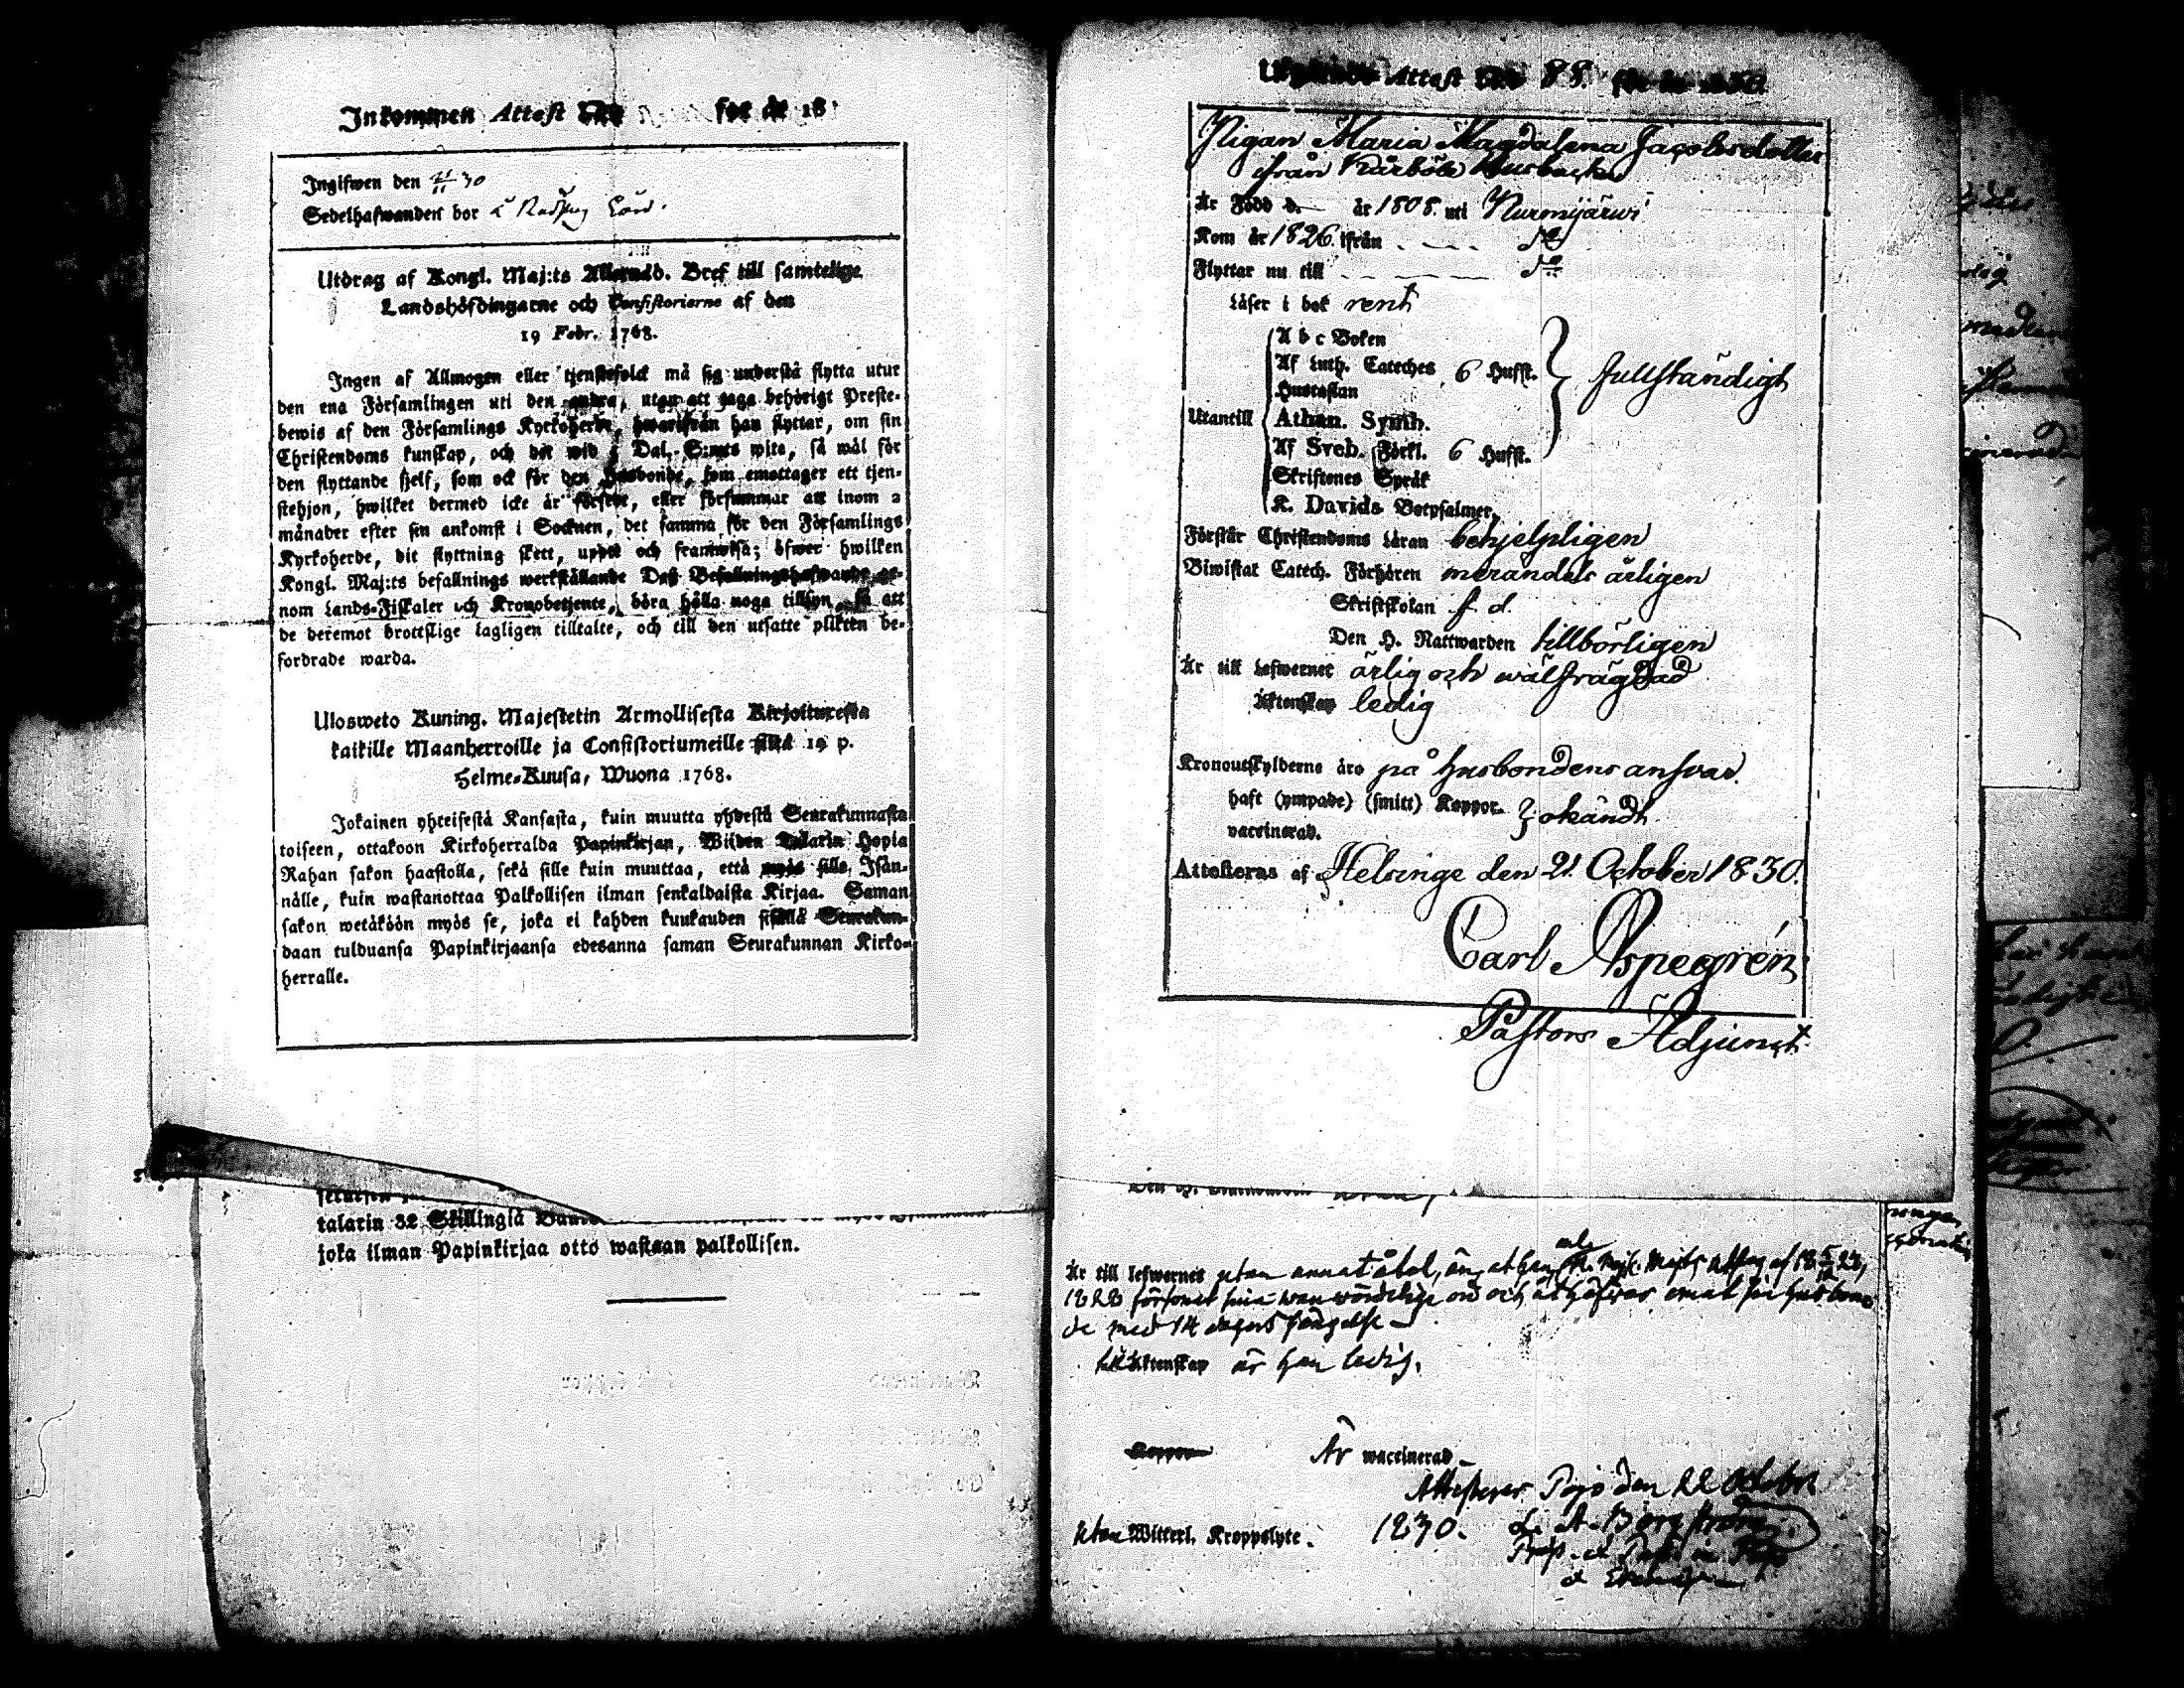 Inkommen Attest N:o for år 18
Ingifwen den 21/11 30
Sedelhafwanden bor
Utdrag af Kongl. Maj:ts Allernåd. Bref till samtelige
Landshöfdingarne och Consistorierne af den
19 Febr. 1768.
Ingen af Allmogen eller tjenstefolck må sig understå flytta utur
den ena Församlingen uti den andra, utan att taga behörigt Preste-
bewis af den Församlings Kyrkoherde, hwarifrån han flyttar, om sin
Christendoms kunskap, och det wid Dal. S:mts wite, så wäl för
den flyttande sjelf, som ock för den Husbonde, som emottager ett tjen-
stehjon, hwilket dermed icke är försedt, eller försummar att inom 2
månader efter sin ankomst i Socknen, det samma för den Församlings
Kyrkoherde, dit flyttning skett, uppte och framwisa; öfwer hwilken
Kongl. Maj:ts befallnings werkställande Deß Befallningshafwande ge-
nom Lands-Fiskaler och Kronobetjente, böra hålla noga tillsyn, så att
de deremot brottslige lagligen tilltalte, och till den utsatte plikten be-
fordrade warda.
Ulosweto Kuning. Majestetin Armollisesta Kirjoituresta
kaikille Maanherroille ja Consistoriumeille siitä 19 p.
Helme-Kuusa, Wuona 1768.
Jokainen yhteisestä Kansasta, kuin muutta yhdestä Seurakunnasta
toiseen, ottakoon Kirkoherralda Papinkirjan, Wiiden Talarin Hopia
Rahan sakon haastolla, sekä sille kuin muuttaa, että myös sille Isän-
nälle, kuin wastanottaa Palkollisen ilman senkaldaista Kirjaa. Saman
sakon wetäköön myös se, joka ei kahden kuukauden sisällä Seurakun-
daan tulduansa Papinkirjaansa edesanna saman Seurakunnan Kirko-
herralle.
talarin 32 Skillingiä
joka ilman Papinkirjaa otto wastaan palkollisen.
Attest N:o 88. för år 1830
Pigan Maria Magdalena Jacobsdotter
ifrån Kårböle Husbacka
Är Född d. — år 1808. uti Nurmijärwi
Kom år 1826. ifrån - - - - d:o
Flyttar nu till - - - - d:o
Läser i bok rent
Utantill
A b c Boken
Af Luth. Cateches 6 Hufst.
Hustaflan
fullständigt
Athan. Symb.
Af Sveb. Förkl. 6 Hufst.
Skriftenes Språk
K. Davids Botpsalmer,
Förstår Christendoms Läran behjelpligen
Biwistat Catech. Förhören merendels årligen
Skriftskolan f. d.
Den H. Nattwarden tillbörligen
Är till Lefwernet ärlig och wälfrägdad
Äktenskap ledig
Kronoutskylderne äro på Husbondens answar.
haft (ympade) (smitt) Koppor
vaccinerad.
okändt
Attesteras af Helsinge den 21. October 1830.
Carl Aspegrén
Pastors Adjunct
Är till lefwernet utan annat åtal, än at han
1828 försonat sina
de med 14 dagars fängelse
till Äktenskap är han ledig.
Koppor Är waccinerad
Attesterar Pojo den 22 October
utan Witterl. Kroppslyte. 1830.